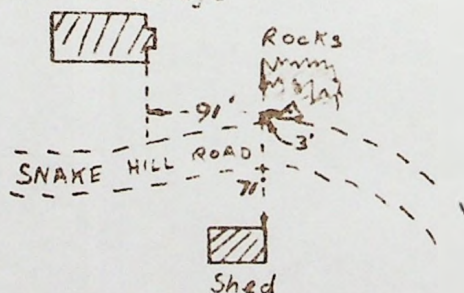 Rocks
91'
3'
SNAKE HILL ROAD
71'
Shed